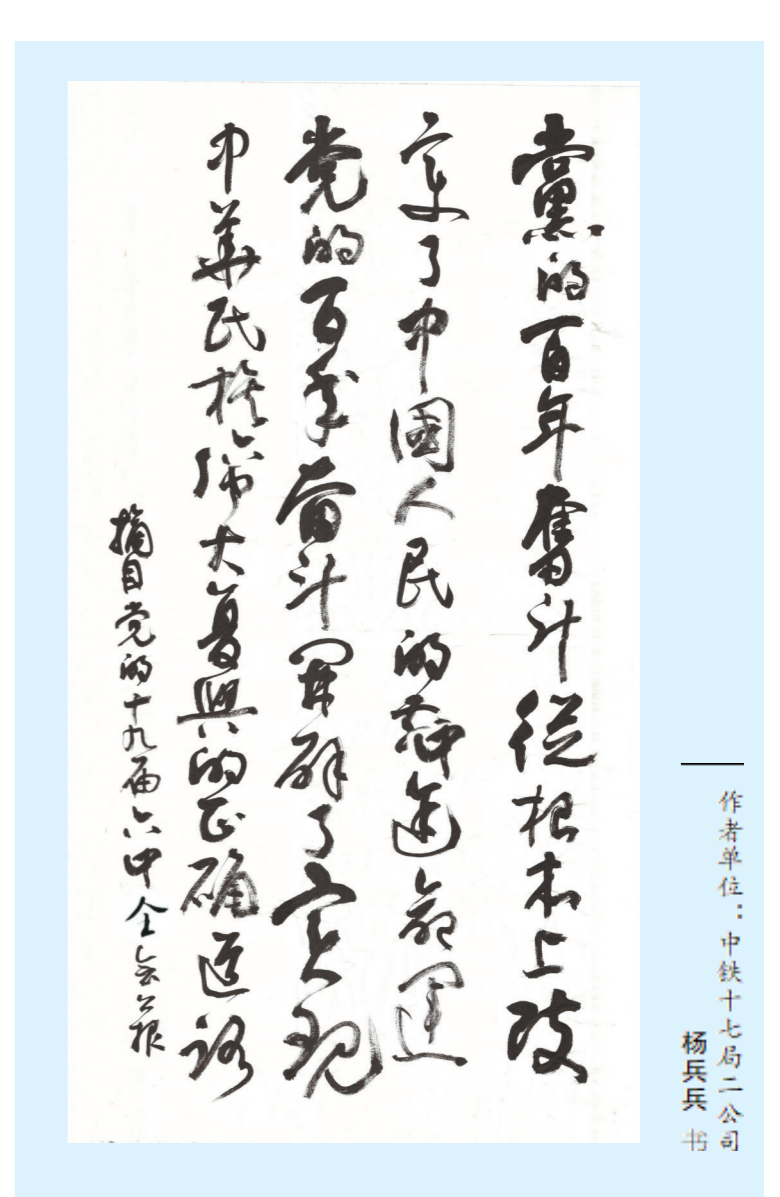 黨的百年奮斗從根本上改
变了中國人民的前途命運
党的百年奋斗開辟了实现
中華民族偉大复興的正确道路
摘自党的十九届六中全会公报
作者单位：中铁十七局二公司
杨兵兵 书